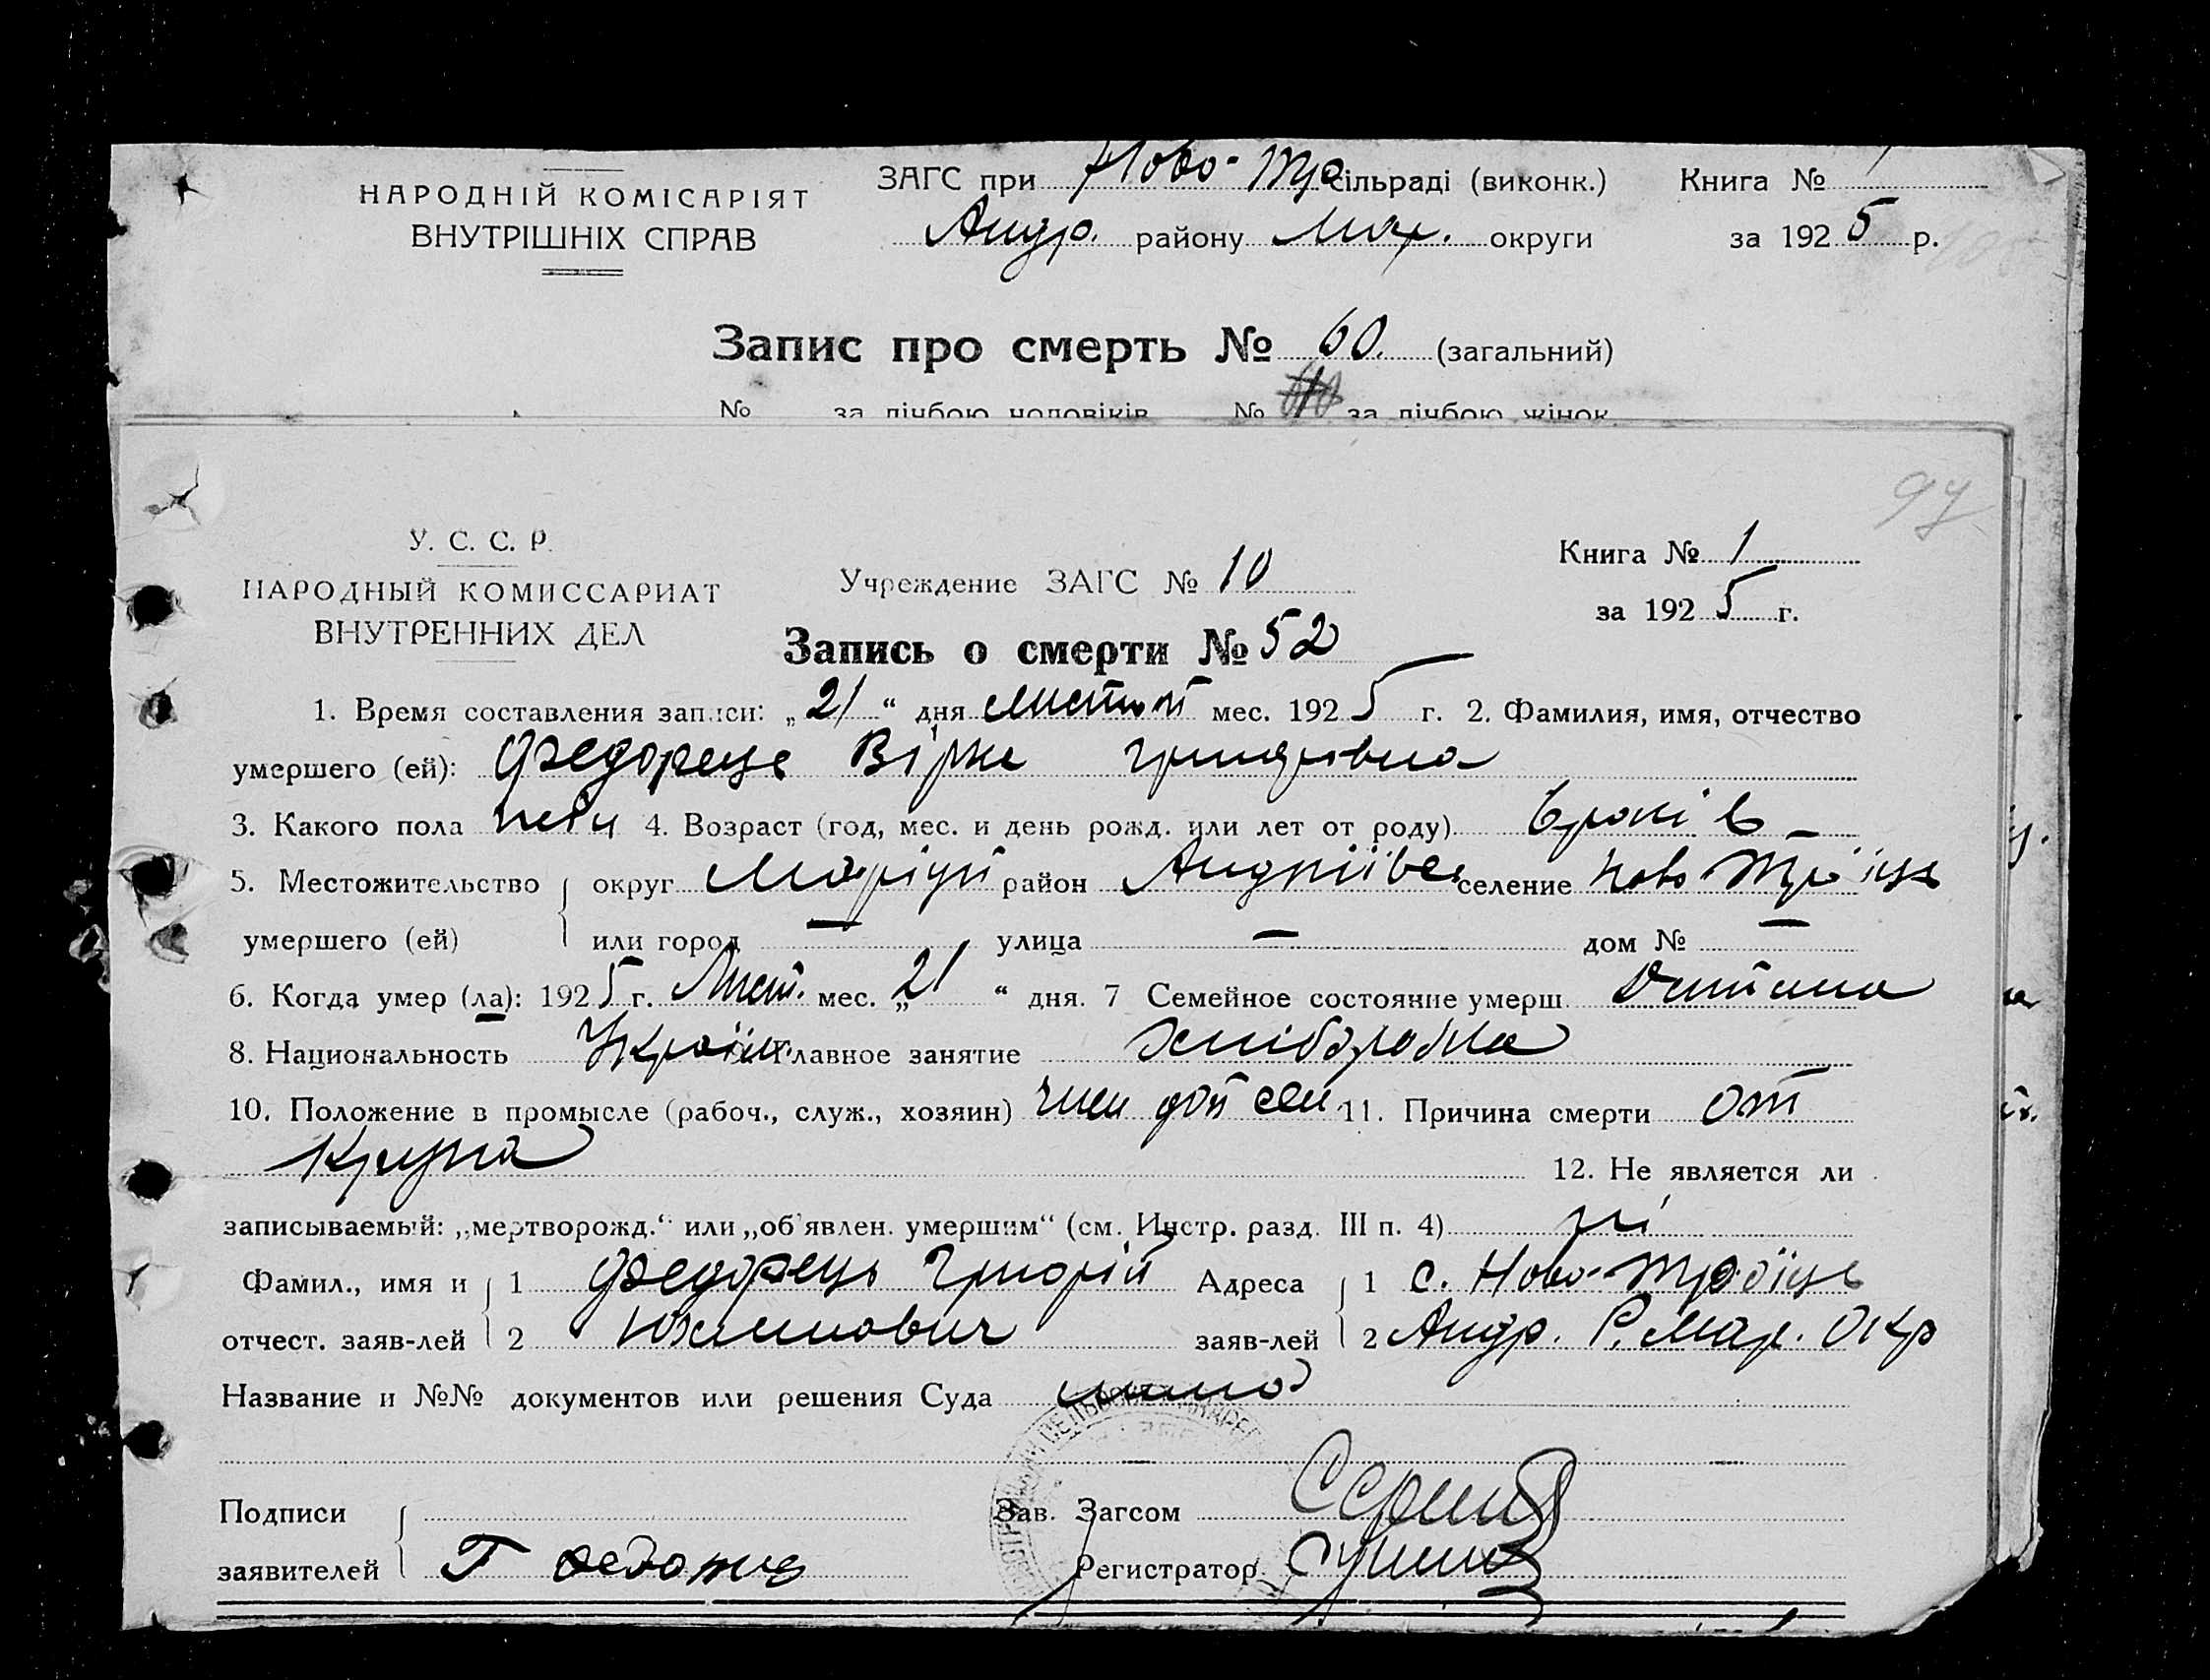 НАРОДНІЙ КОМІСАРІЯТ
ВНУТРІШНІХ СПРАВ
ЗАГС при Ново-Тро сільраді (виконк.)
Андр. району Мар. округи
Книга №
за 1925 р.
Запис про смерть № 60. (загальний)
№ за лічбою чоловіків № за лічбою жінок
97
У. С. С. Р.
НАРОДНЫЙ КОМИССАРИАТ
ВНУТРЕННИХ ДЕЛ
Учреждение ЗАГС № 10
Книга № 1
за 1925 г.
Запись о смерти № 52
1. Время составления записи: „21“ дня мес. 1925 г. 2. Фамилия, имя, отчество
умершего (ей): Федорець Віра Григорівна
3. Какого пола 4. Возраст (год, мес. и день рожд. или лет от роду) 6 років –
5. Местожительство округ Маріуп район Андріївс селение Ново Троїцьк
умершего (ей) или город – улица – дом № –
6. Когда умер (ла): 1925 г. Лист. мес. „21“ дня. 7 Семейное состояние умерш. Дитина
8. Национальность Україн. 9. Главное занятие хліборобка
10. Положение в промысле (рабоч., служ., хозяин) член сем 11. Причина смерти от
Крупа
12. Не является ли
записываемый: „мертворожд.“ или „об'явлен. умершим“ (см. Инстр. разд. III п. 4) ні
Фамил., имя и 1 Федорець Григорій Адреса 1 с. Ново-Троїцьк
отчест. заяв-лей 2 Юхимович заяв-лей 2 Андр. Р. Мар. Окр
Название и №№ документов или решения Суда
Подписи
Зав. Загсом
заявителей Г Федорец
Регистратор